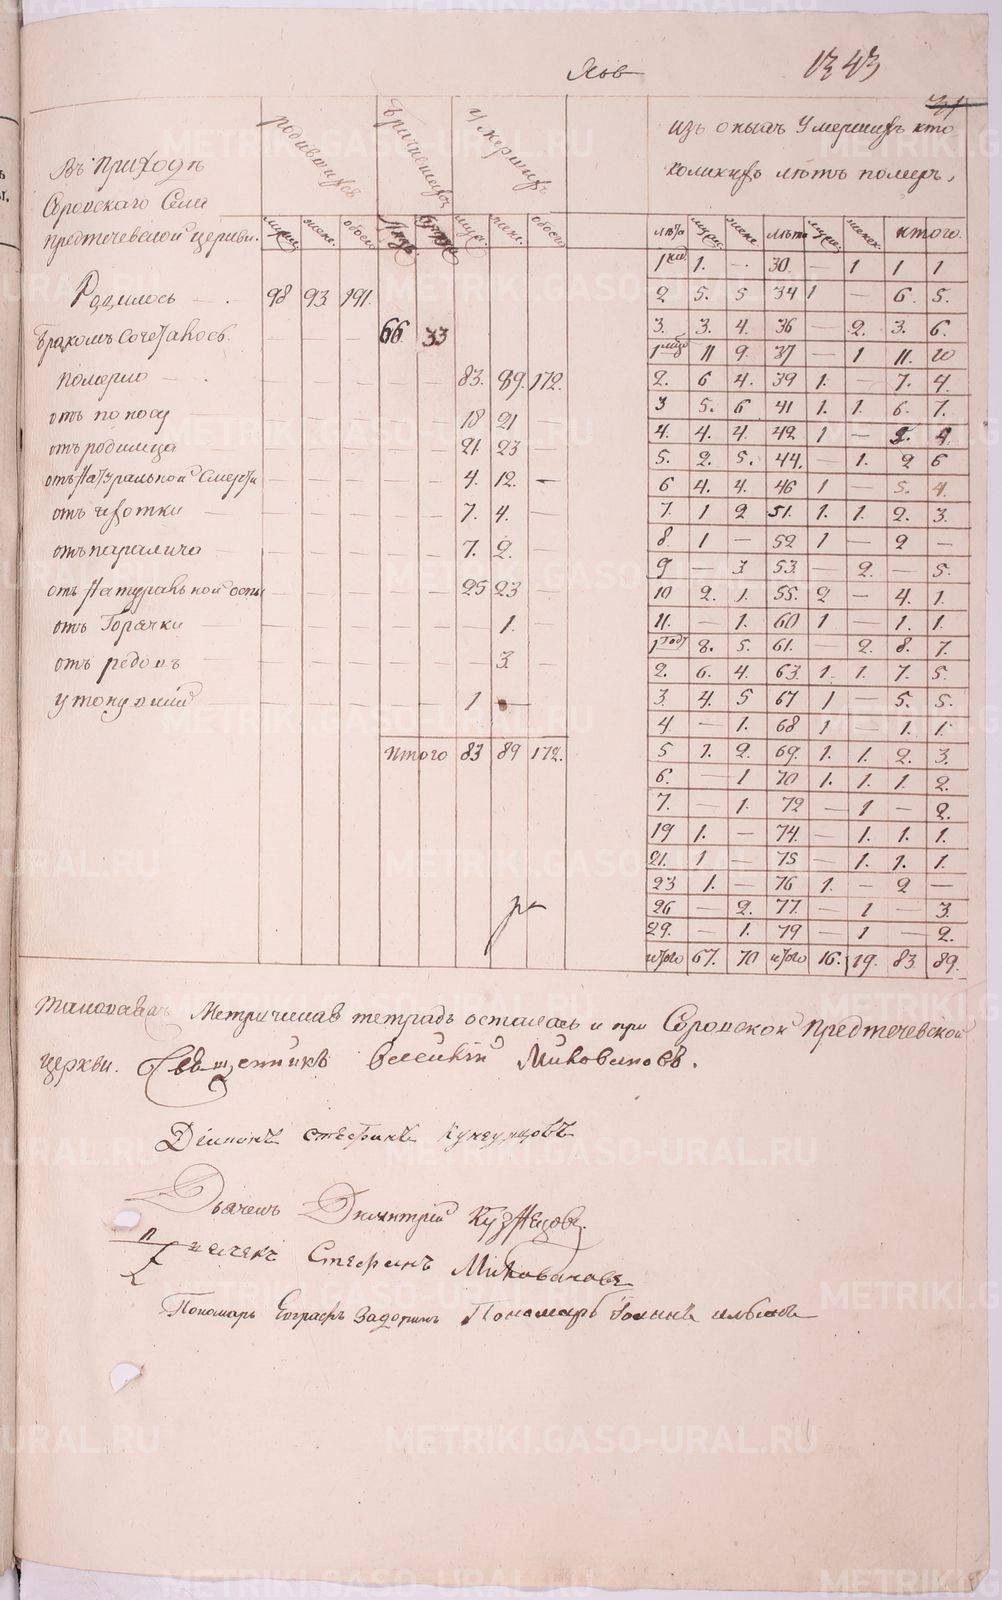 1343
Въ приходѣ
Соровскаго Села
предтечевской церкви.
родившихся
бракомъ
умершихъ
изъ оныхъ умершихъ кто
коликихъ лѣтъ померъ,
муж. жен. обоего муж. жен. обоего
лѣта муж. жен. лѣта муж. женск. итого
Родилось — . 98 93 191.
Бракомъ сочеталось. — — — 66 33
померло — . 83. 89. 172.
отъ поносу — 18 21 —
отъ родимца — 21. 23 —
отъ натуральной смерти — 4. 12. —
отъ чахотки — 7. 4. —
отъ паралича — 7. 2. —
отъ натуральной оспы — 25 23 —
отъ Горячки — — 1. —
отъ родовъ — — 3. —
утонувший — 1 —
итого 83 89 172.
1 1. — 30. — 1 1 1
2 5. 5 34 1 — 6. 5.
3. 3. 4. 36 — 2. 3. 6.
1 11 9. 37 — 1 11. 10
2. 6 4. 39 1. — 7. 4.
3 5. 6 41 1. 1. 6. 7.
4. 4. 4. 42 1 — 5. 4.
5. 2. 5. 44. — 1. 2 6
6 4. 4. 46 1 — 5. 4.
7. 1 2 51. 1. 1. 2. 3.
8. 1 — 52 1 — 2 —
9 — 3 53. — 2. — 5.
10 2. 1. 55. 2 — 4. 1.
11. — 1. 60 1 — 1. 1.
1 8. 5. 61. — 2. 8. 7.
2. 6. 4. 63. 1. 1. 7. 5.
3. 4. 5 67 1 — 5. 5.
4 — 1. 68 1 — 1. 1.
5 1. 2. 69. 1. 1. 2. 3.
6. — 1 70 1. 1. 1. 2.
7. — 1. 72 — 1 — 2.
19 1. — 74. — 1. 1. 1.
21. 1 — 75 — 1. 1. 1.
23 1. — 76 1. — 2 —
26 — 2. 77. — 1 — 3.
29. — 1. 79 — 1 — 2.
итого 67. 70 итого 16. 19. 83. 89.
Таковаяжъ Метрическая тетрадь осталась и при Соровской предтечевской
церкви. Священникъ Миловановъ.
Діаконъ стефанъ
Дьячекъ Димитрий Кузнецовъ.
Стефанъ Миловановъ
Пономарь Евграфъ Задоринъ Пономарь Іоаннъ
METRIKI.GASO-URAL.RU